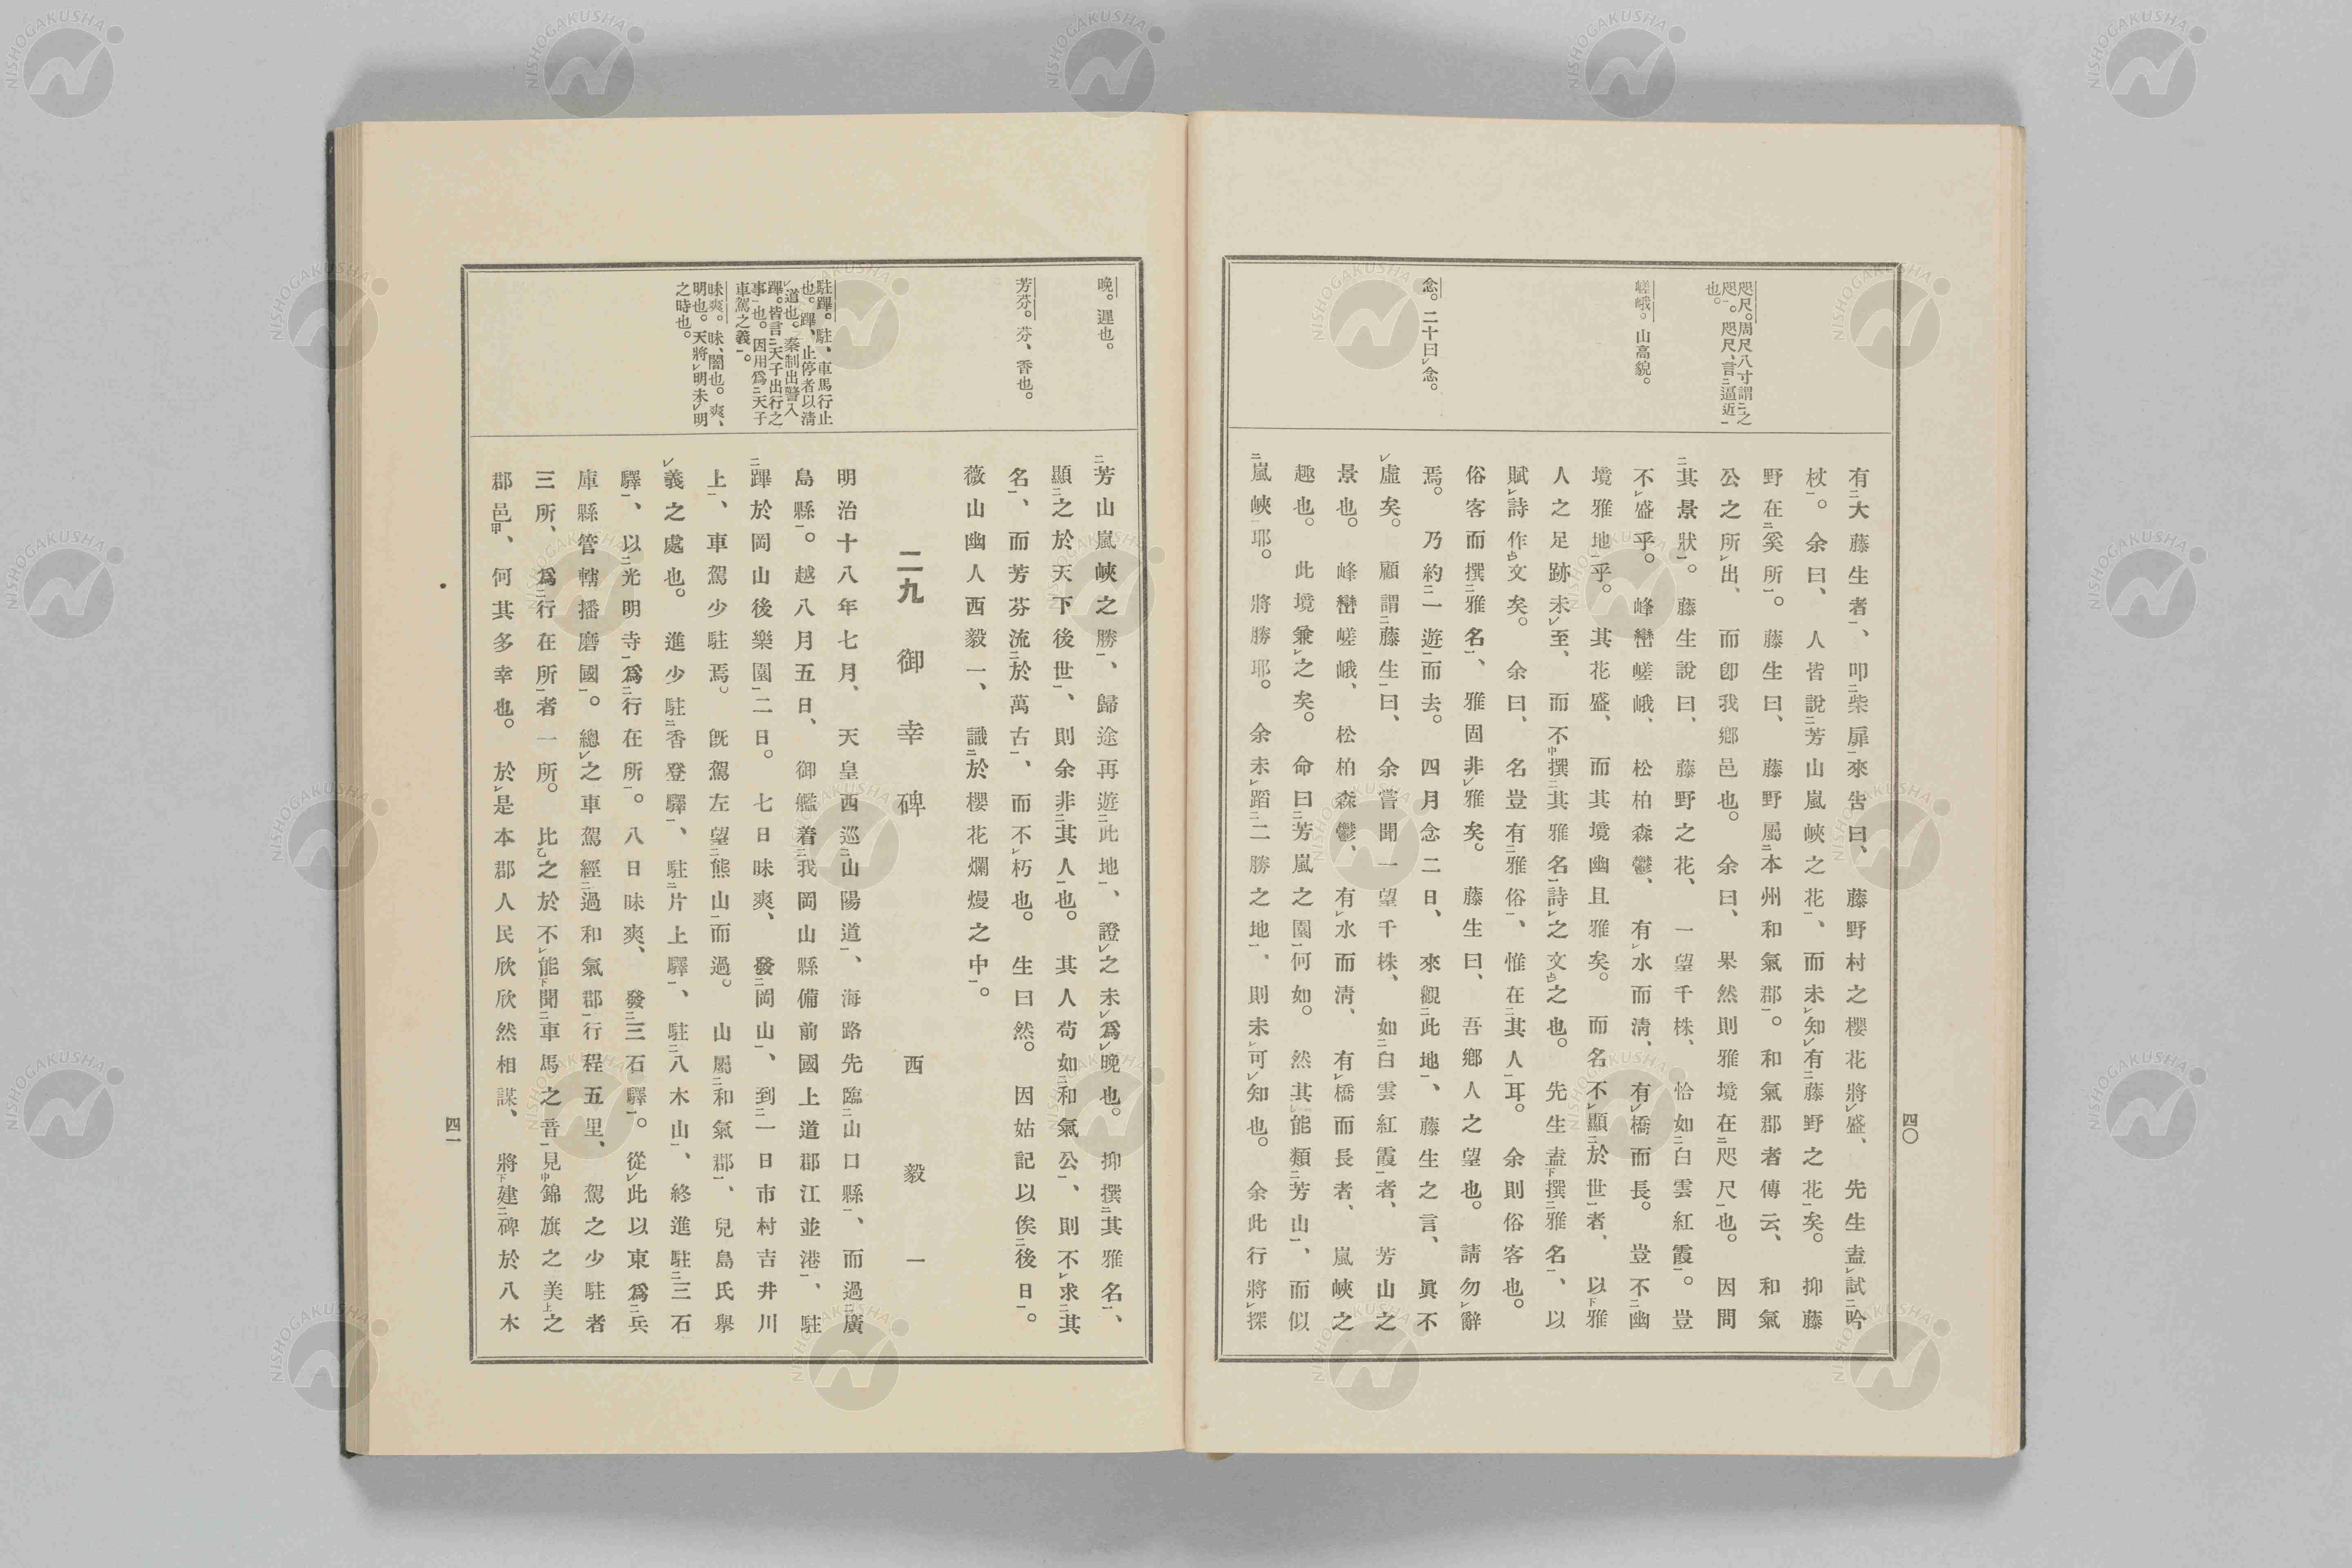 咫尺。周尺八寸謂㆓之
咫㆒。咫尺、言㆓逼近㆒
也。
嵯峨。山高貌。
念。二十曰㆑念。
有㆓大藤生者㆒、叩㆓柴扉㆒來告曰、藤野村之櫻花將㆑盛、先生盍㆑試㆓吟
杖㆒。余曰、人皆說㆓芳山嵐峽之花㆒、而未㆑知㆑有㆓藤野之花㆒矣。抑藤
野在㆓奚所㆒。藤生曰、藤野屬㆓本州和氣郡㆒。和氣郡者傳云、和氣
公之所㆑出、而卽我鄉邑也。余曰、果然則雅境在㆓咫尺㆒也。因問
㆓其景狀㆒。藤生說曰、藤野之花、一望千株、恰如㆓白雲紅霞㆒。豈
不㆑盛乎。峰巒嵯峨、松柏森鬱、有㆑水而淸、有㆑橋而長。豈不㆓幽
境雅地㆒乎。其花盛、而其境幽且雅矣。而名不㆑顯㆓於世㆒者、以㆘雅
人之足跡未㆑至、而不㆗撰㆓其雅名㆒詩㆑之文㆖㆑之也。先生盍㆘撰㆓雅名㆒、以
賦㆑詩作㆖㆑文矣。余曰、名豈有㆓雅俗㆒、惟在㆓其人㆒耳。余則俗客也。
俗客而撰㆓雅名㆒、雅固非㆑雅矣。藤生曰、吾鄉人之望也。請勿㆑辭
焉。乃約㆓一遊㆒而去。四月念二日、來觀㆓此地㆒、藤生之言、眞不
㆑虛矣。顧謂㆓藤生㆒曰、余嘗聞一望千株、如㆓白雲紅霞㆒者、芳山之
景也。峰巒嵯峨、松柏森鬱、有㆑水而淸、有㆑橋而長者、嵐峽之
趣也。此境兼㆑之矣。命曰㆓芳嵐之園㆒何如。然其能類㆓芳山㆒、而似
㆓嵐峽㆒耶。將勝耶。余未㆑蹈㆓二勝之地㆒、則未㆑可㆑知也。余此行將㆑探
四〇
晚。遲也。
芳芬。芬、香也。
駐蹕。駐、車馬行止
也。蹕、止停者以淸
㆑道也。秦制出警入
蹕。皆言㆓天子出行之
事㆒也。因用爲㆓天子
車駕之義㆒。
昧爽。昧、闇也。爽、
明也。天將㆑明未㆑明
之時也。
㆓芳山嵐峽之勝㆒、歸途再遊㆓此地㆒、證㆑之未㆑爲㆑晚也。抑撰㆓其雅名㆒、
顯㆓之於天下後世㆒、則余非㆓其人㆒也。其人苟如㆓和氣公㆒、則不㆑求㆓其
名㆒、而芳芬流㆓於萬古㆒、而不㆑朽也。生曰然。因姑記以俟㆓後日㆒。
薇山幽人西毅一、識㆓於櫻花爛熳之中㆒。
二九　御幸碑　西毅一
明治十八年七月、天皇西巡㆓山陽道㆒、海路先臨㆓山口縣㆒、而過㆓廣
島縣㆒。越八月五日、御艦着㆓我岡山縣備前國上道郡江並港㆒、駐
㆓蹕於岡山後樂園㆒二日。七日昧爽、發㆓岡山㆒、到㆓一日市村吉井川
上㆒、車駕少駐焉。旣駕左望㆓熊山㆒而過。山屬㆓和氣郡㆒、兒島氏擧
㆑義之處也。進少駐㆓香登驛㆒、駐㆓片上驛㆒、駐㆓八木山㆒、終進駐㆓三石
驛㆒、以㆓光明寺㆒爲㆓行在所㆒。八日昧爽、發㆓三石驛㆒。從㆑此以東爲㆓兵
庫縣管轄播磨國㆒。總㆑之車駕經㆓過和氣郡㆒行程五里、駕之少駐者
三所、爲㆓行在所㆒者一所。比㆚之於不㆑能㆘聞㆓車馬之音㆒見㆗錦旗之美㆖之
郡邑㆙、何其多幸也。於㆑是本郡人民欣欣然相謀、將㆘建㆓碑於八木
四一